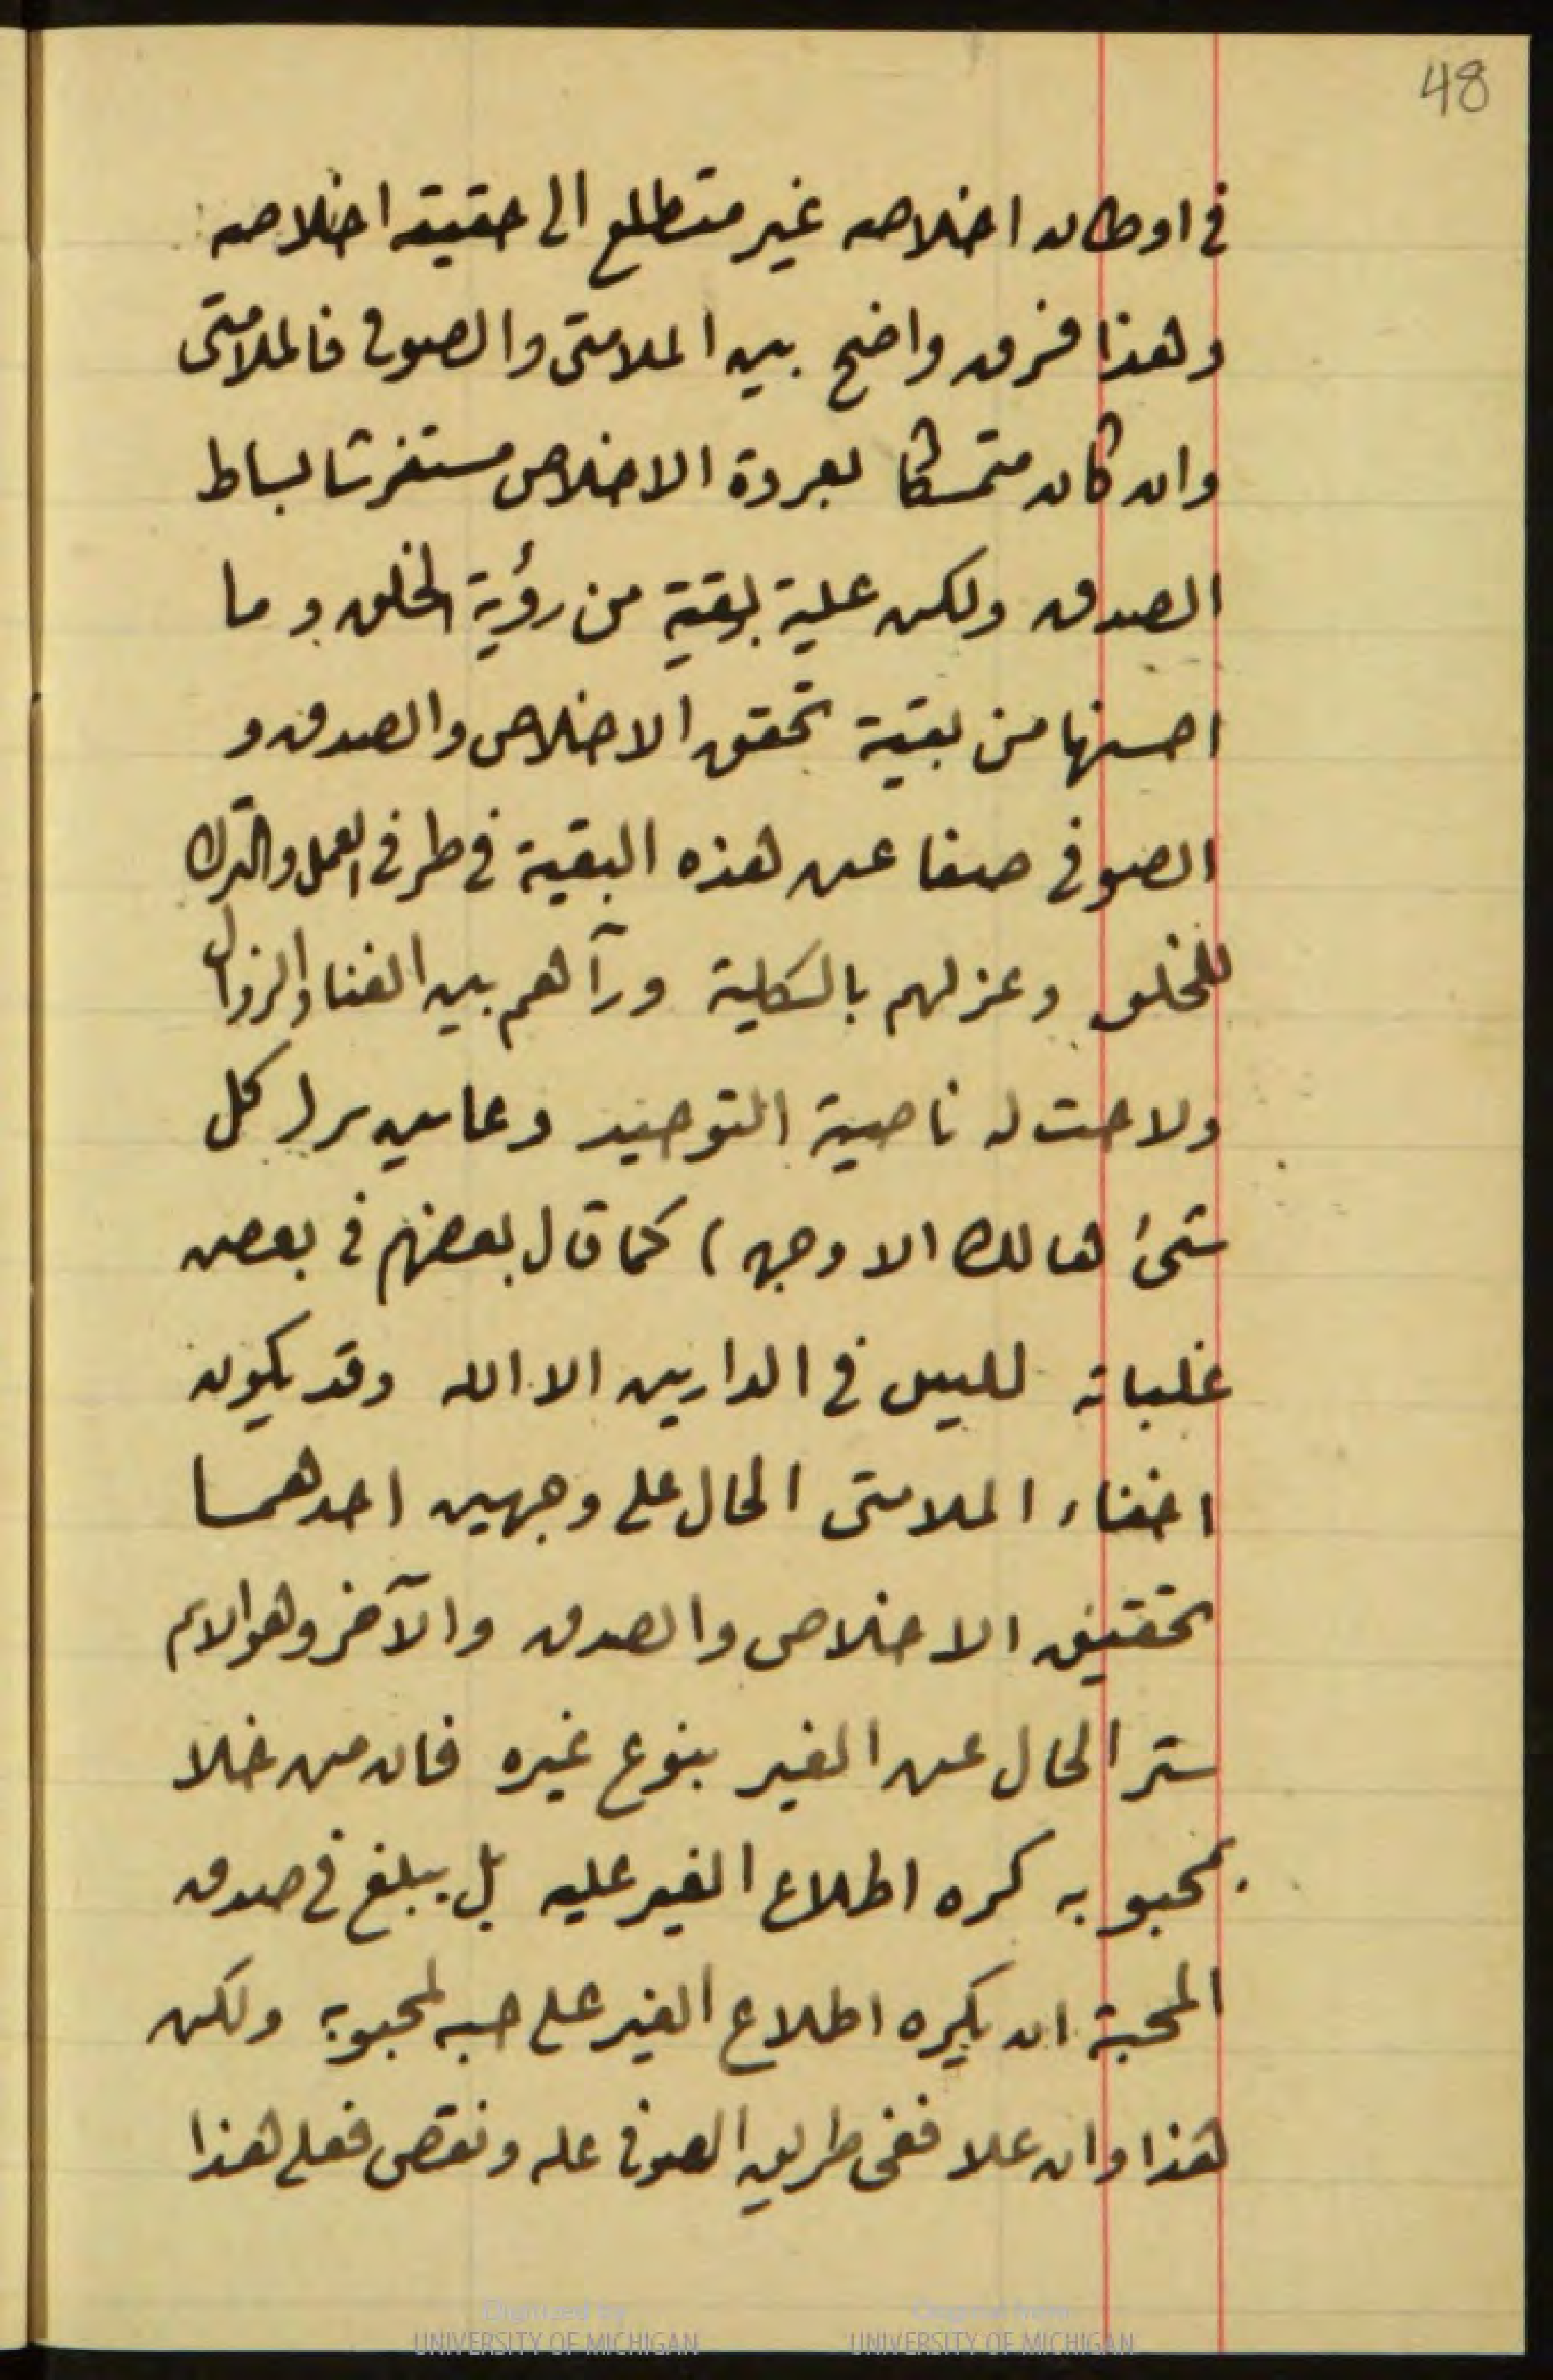 48
فى اوطان اخلاصه غير متطلع الى حقيقة اخلاصه
وهذا فرق واضح بين الملامتى والصوفى فالملامتى
وان كان متمسكا بعروة الاخلاص مستفرشا بساط
الصدق ولكن علية بقية من رؤية الخلق وما
احسنها من بقية تحقق الاخلاص والصدق و
الصوفى صفا عن هذه البقية فى طرفى العمل والترك
للخلق وعزلهم بالكلية ورآهم بين الفنا والزوال
ولاحت له ناصية التوحيد وعاين سر ( كل
شىء هالك الا وجهه ) كما قال بعضهم فى بعض
غلباته لليس فى الدارين الا الله وقد يكون
اخفاء الملامتى الحال على وجهين احدهما
تحقيق الاخلاص والصدق والآخر وهو الاتم
ستر الحال عن الغير بنوع غيره فان من خلا
بمحبوبه كره اطلاع الغير عليه بل يبلغ فى صدق
المحبة ان يكره اطلاع الغير على حبه لمحبوبه ولكن
هذا وان علا ففى طريق الصوفى عله ونقص فعلى هذا
Digitized by
UNIVERSITY OF MICHIGAN
Original from
UNIVERSITY OF MICHIGAN